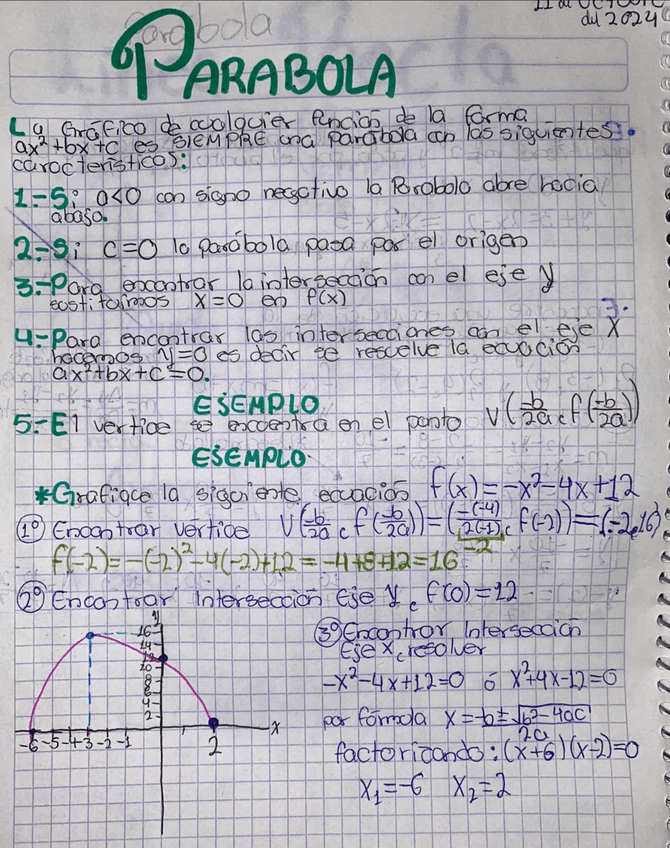 11 de octubre
del 2024
Parabola
PARABOLA
La Gráfica de cualquier función de la forma
ax²+bx+c es SIEMPRE una parábola con las siguientes
características:
1.-Si a<0 con signo negativo la Parabola abre hacia
abajo.
2.-Si c=0 la parábola pasa por el origen
3.-Para encontrar la intersección con el eje y
sustituimos x=0 en f(x)
4.-Para encontrar las intersecciones con el eje x
hacemos y=0 es decir se resuelve la ecuación
ax²+bx+c=0.
EJEMPLO
5.-El vertice se encuentra en el punto V(-b/2a, f(-b/2a))
EJEMPLO
*Grafique la siguiente ecuación f(x)=-x²-4x+12
1º Encontrar vertice V(-b/2a, f(-b/2a))=(-(-4)/2(-1), f(-2))=(-2,16)
-2
f(-2)=-(-2)²-4(-2)+12=-4+8+12=16
2º Encontrar Intersección Eje y, f(0)=12
3º Encontrar Intersección
Eje x, resolver
-x²-4x+12=0 ó x²+4x-12=0
por fórmula x=-b±√b²-4ac
2a
factorizando: (x+6)(x-2)=0
x₁=-6 x₂=2
y
16
14
12
10
8
6
4
2
-6 -5 -4 -3 -2 -1 2 x